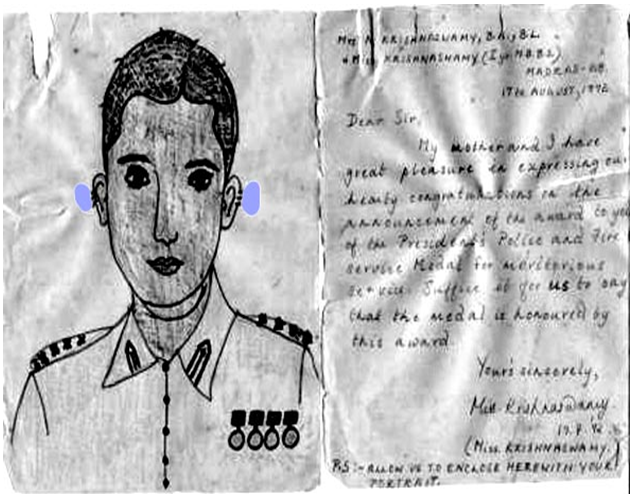 Mrs. A. KRISHNASWAMY, B.A., B.L.
& Miss. KRISHNASWAMY (I yr. M.B.B.S.)
MADRAS-
17th AUGUST, 1972
Dear Sir,
My mother and I have
great pleasure in expressing our
hearty congratulations on the
announcement of the award to you
of the President's Police and Fire
service Medal for meritorious
service. Suffice it for us to say
that the medal is honoured by
this award.
Yours sincerely,
Miss. Krishnaswamy.
17.8.72
(Miss. KRISHNASWAMY.)
P.S:- ALLOW US TO ENCLOSE HEREWITH YOUR
PORTRAIT.